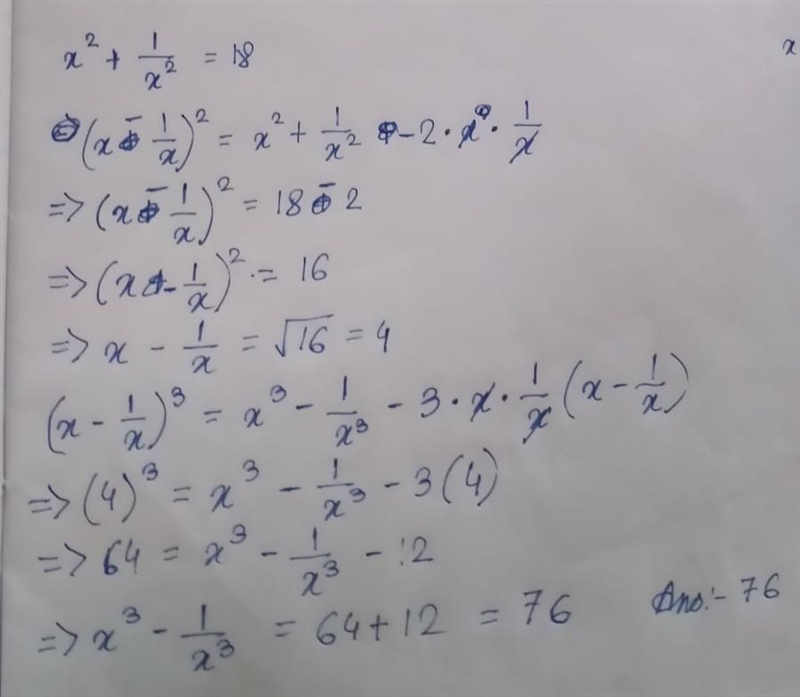 x² + 1/x² = 18
x
⇒ (x - 1/x)² = x² + 1/x² - 2 · x · 1/x
⇒ (x - 1/x)² = 18 - 2
⇒ (x - 1/x)² = 16
⇒ x - 1/x = √16 = 4
(x - 1/x)³ = x³ - 1/x³ - 3 · x · 1/x (x - 1/x)
⇒ (4)³ = x³ - 1/x³ - 3(4)
⇒ 64 = x³ - 1/x³ - 12
⇒ x³ - 1/x³ = 64 + 12 = 76 Ans:- 76